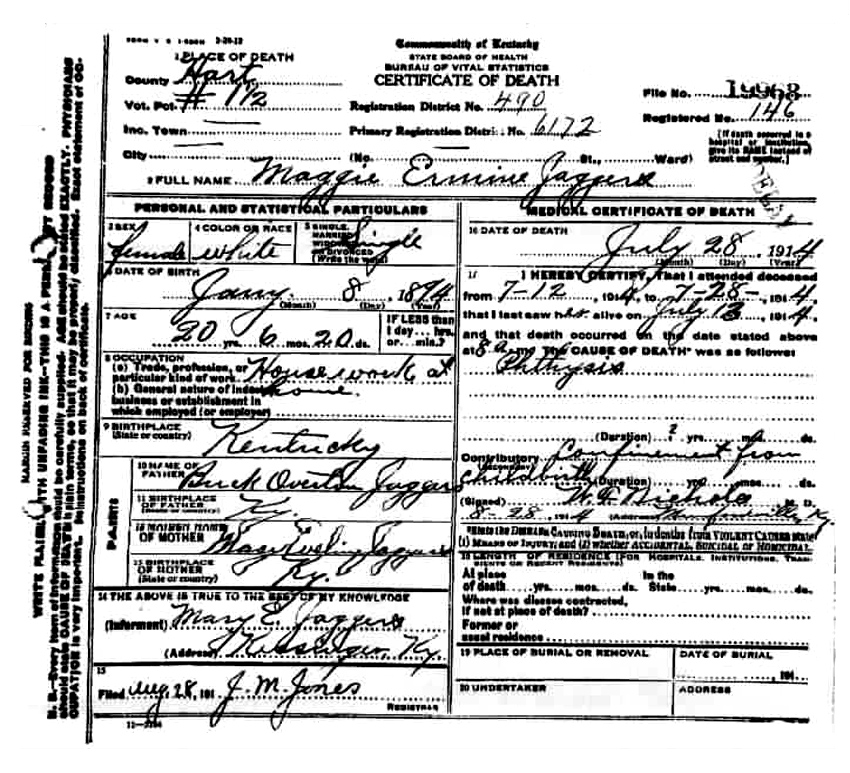 Commonwealth of Kentucky
STATE BOARD OF HEALTH
BUREAU OF VITAL STATISTICS
CERTIFICATE OF DEATH
1 PLACE OF DEATH
County Hart
Vot. Pct. # 1 1/2
Registration District No. 490
File No. 19968
Inc. Town
Primary Registration District No. 6172
Registered No. 146
[If death occurred in a hospital or institution, give its NAME instead of street and number.]
City (No. St., Ward)
2 FULL NAME Maggie Ermine Jaggers
PERSONAL AND STATISTICAL PARTICULARS
3 SEX female
4 COLOR OR RACE white
5 SINGLE, MARRIED, WIDOWED OR DIVORCED (Write the word) Single
6 DATE OF BIRTH
Jany. 8, 1894
(Month) (Day) (Year)
7 AGE
20 yrs. 6 mos. 20 ds.
IF LESS than 1 day... hrs. or... min.?
8 OCCUPATION
(a) Trade, profession, or particular kind of work Housework at
(b) General nature of industry, home.
business or establishment in
which employed (or employer)
9 BIRTHPLACE
(State or country) Kentucky
PARENTS
10 NAME OF FATHER Buck Overton Jaggers
11 BIRTHPLACE OF FATHER
(State or country) Ky.
12 MAIDEN NAME OF MOTHER Mary Eveline Jaggers
13 BIRTHPLACE OF MOTHER
(State or country) Ky.
14 THE ABOVE IS TRUE TO THE BEST OF MY KNOWLEDGE
(Informant) Mary E. Jaggers
(Address) Ky.
15
Filed Aug 28, 191 J. M. Jones
REGISTRAR
MEDICAL CERTIFICATE OF DEATH
16 DATE OF DEATH
July 28, 1914
(Month) (Day) (Year)
17 I HEREBY CERTIFY, That I attended deceased
from 7-12, 1914, to 7-28-, 1914,
that I last saw her alive on July 13, 1914,
and that death occurred on the date stated above
at 8 a.m. The CAUSE OF DEATH* was as follows:
Phthysis
(Duration) 2 yrs. mos. ds.
Contributory Confinement from
(Secondary) childbirth (Duration) yrs. mos. ds.
(Signed) M. D.
8-28, 1914 (Address) Ky.
*State the DISEASE CAUSING DEATH, or, in deaths from VIOLENT CAUSES state
(1) MEANS OF INJURY; and (2) whether ACCIDENTAL, SUICIDAL OR HOMICIDAL.
18 LENGTH OF RESIDENCE (FOR HOSPITALS, INSTITUTIONS, TRANSIENTS OR RECENT RESIDENTS)
At place of death yrs. mos. ds. In the State yrs. mos. ds.
Where was disease contracted,
if not at place of death?
Former or
usual residence
19 PLACE OF BURIAL OR REMOVAL
DATE OF BURIAL
, 191
20 UNDERTAKER
ADDRESS
MARGIN RESERVED FOR BINDING
WRITE PLAINLY WITH UNFADING INK—THIS IS A PERMANENT RECORD
N. B.—Every item of information should be carefully supplied. AGE should be stated EXACTLY. PHYSICIANS
should state CAUSE OF DEATH in plain terms, so that it may be properly classified. Exact statement of OC-
CUPATION is very important. See instructions on back of certificate.